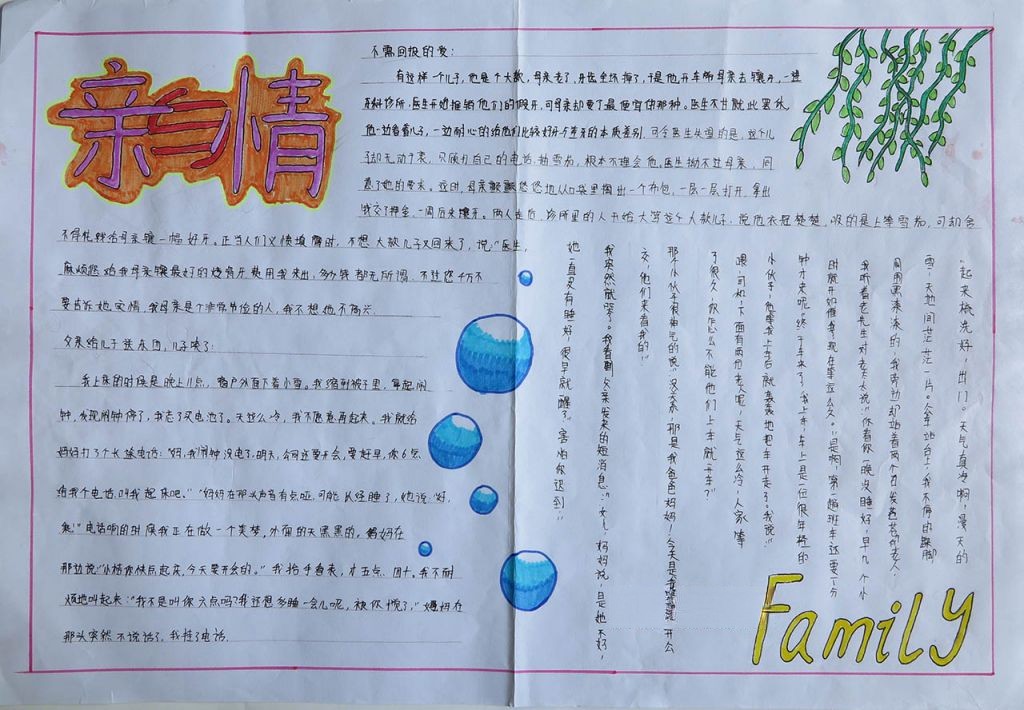 亲情
不需回报的爱:
有这样一个儿子,他是个大款,母亲老了,牙齿全坏掉了,于是他开车带母亲去镶牙,一进
牙科诊所,医生开始推销他们的假牙,可母亲却要了最便宜的那种。医生不甘就此罢休,
他一边看着儿子,一边耐心的给他们比较好牙与差牙的本质差别。可令医生失望的是,这个儿
子却无动于衷,只顾打自己的电话,抽雪茄,根本不理会他。医生拗不过母亲,同
意了她的要求。这时,母亲颤颤悠悠地从口袋里掏出一个布包,一层一层打开,拿出
钱交了押金,一周后来镶牙。两人走后,诊所里的人开始大骂这个大款儿子,说他衣冠楚楚,吸的是上等雪茄,可却舍
不得花钱给母亲镶一幅好牙。正当他们义愤填膺时,不想大款儿子又回来了,说:“医生,
麻烦您给我母亲镶最好的烤瓷牙,费用我来出,多少钱都无所谓。不过您千万不
要告诉她实情,我母亲是个非常节俭的人,我不想她不高兴。
今天给儿子送东西,儿子读了:
我上床的时候是晚上11点,窗户外面下着小雪。我缩到被子里,拿起闹
钟,发现闹钟停了,我忘了买电池了。天这么冷,我不愿意再起来。我就给
妈妈打了个长途电话:“妈,我闹钟没电了,明天,公司还要开会,要赶早,你6点
给我个电话叫我起床吧。”“妈妈在那头声音有点哑,可能已经睡了,她说:‘好,
乖!”电话响的时候我正在做一个美梦,外面的天黑黑的。妈妈在
那边说:“小桔你快点起床,今天要开会的。”我抬手看表,才五点四十。我不耐
烦地叫起来:“我不是叫你六点吗?我还想多睡一会儿呢,被你搅了。”妈妈在
那头突然不说话了,我挂了电话。
起来梳洗好,出门。天气真冷啊,漫天的
雪,天地间茫茫一片。公车站台上,我不停的跺脚
周围黑漆漆的,我旁边却站着两个白发苍苍的老人。
我听着老先生对老太太说:“你看你一晚没睡好,早几个小
时就开始催我,现在等这么久。”是啊,第一趟班车还要五分
钟才来呢。终于车来了,我上车。车上是一位很年轻的
小伙子,他等我上车后就轰轰地把车开走了。我说:“
喂,司机,下面有两位老人呢,天气这么冷,人家等
了很久,你怎么不能他们上车就开车?”
那个小伙子很神气的说:“没关系,那是我爸爸妈妈,今天是我第一天开公
交,他们来看我的!”
我突然就哭了。我看到父亲发来的短消息:“女儿,妈妈说,是她不好,
她一直没有睡好,很早就醒了,害怕你迟到。”
Family